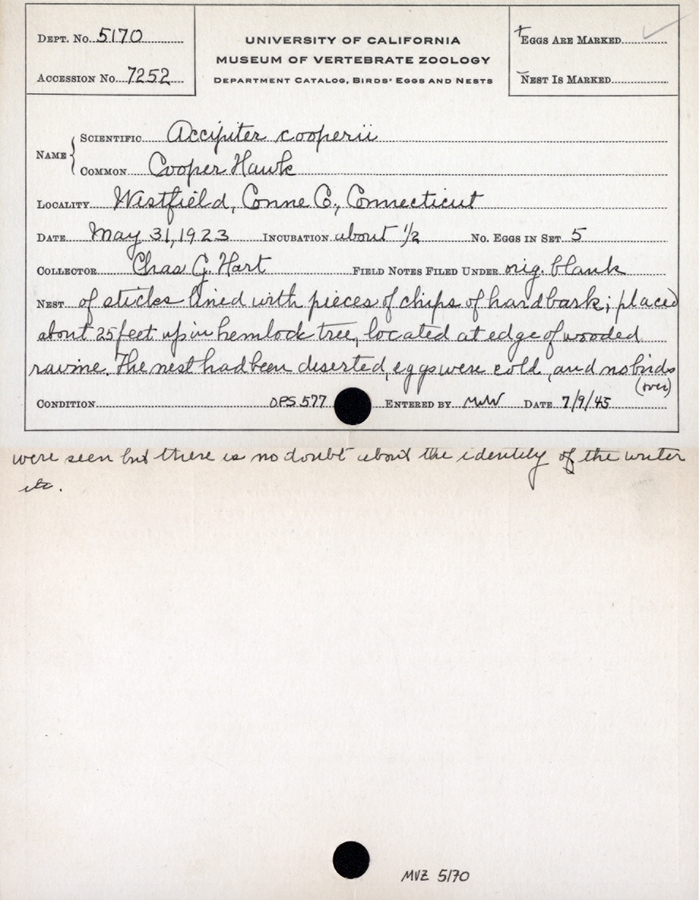 DEPT. NO. 5170
ACCESSION NO. 7252
UNIVERSITY OF CALIFORNIA
MUSEUM OF VERTEBRATE ZOOLOGY
DEPARTMENT CATALOG, BIRDS' EGGS AND NESTS
EGGS ARE MARKED
NEST IS MARKED
NAME
SCIENTIFIC Accipiter cooperii
COMMON Cooper Hawk
LOCALITY Westfield, Conne Co., Connecticut
DATE May 31, 1923 INCUBATION about 1/2 NO. EGGS IN SET 5
COLLECTOR Chas G. Hart FIELD NOTES FILED UNDER orig. blank
NEST of sticks lined with pieces of chips of hard bark; placed
about 25 feet up in hemlock tree, located at edge of wooded
ravine. The nest had been deserted, eggs were cold, and no birds
(over)
CONDITION OPS 577 ENTERED BY MWW DATE 7/9/45
were seen but there is no doubt about the identity of the writer
etc.
MVZ 5170